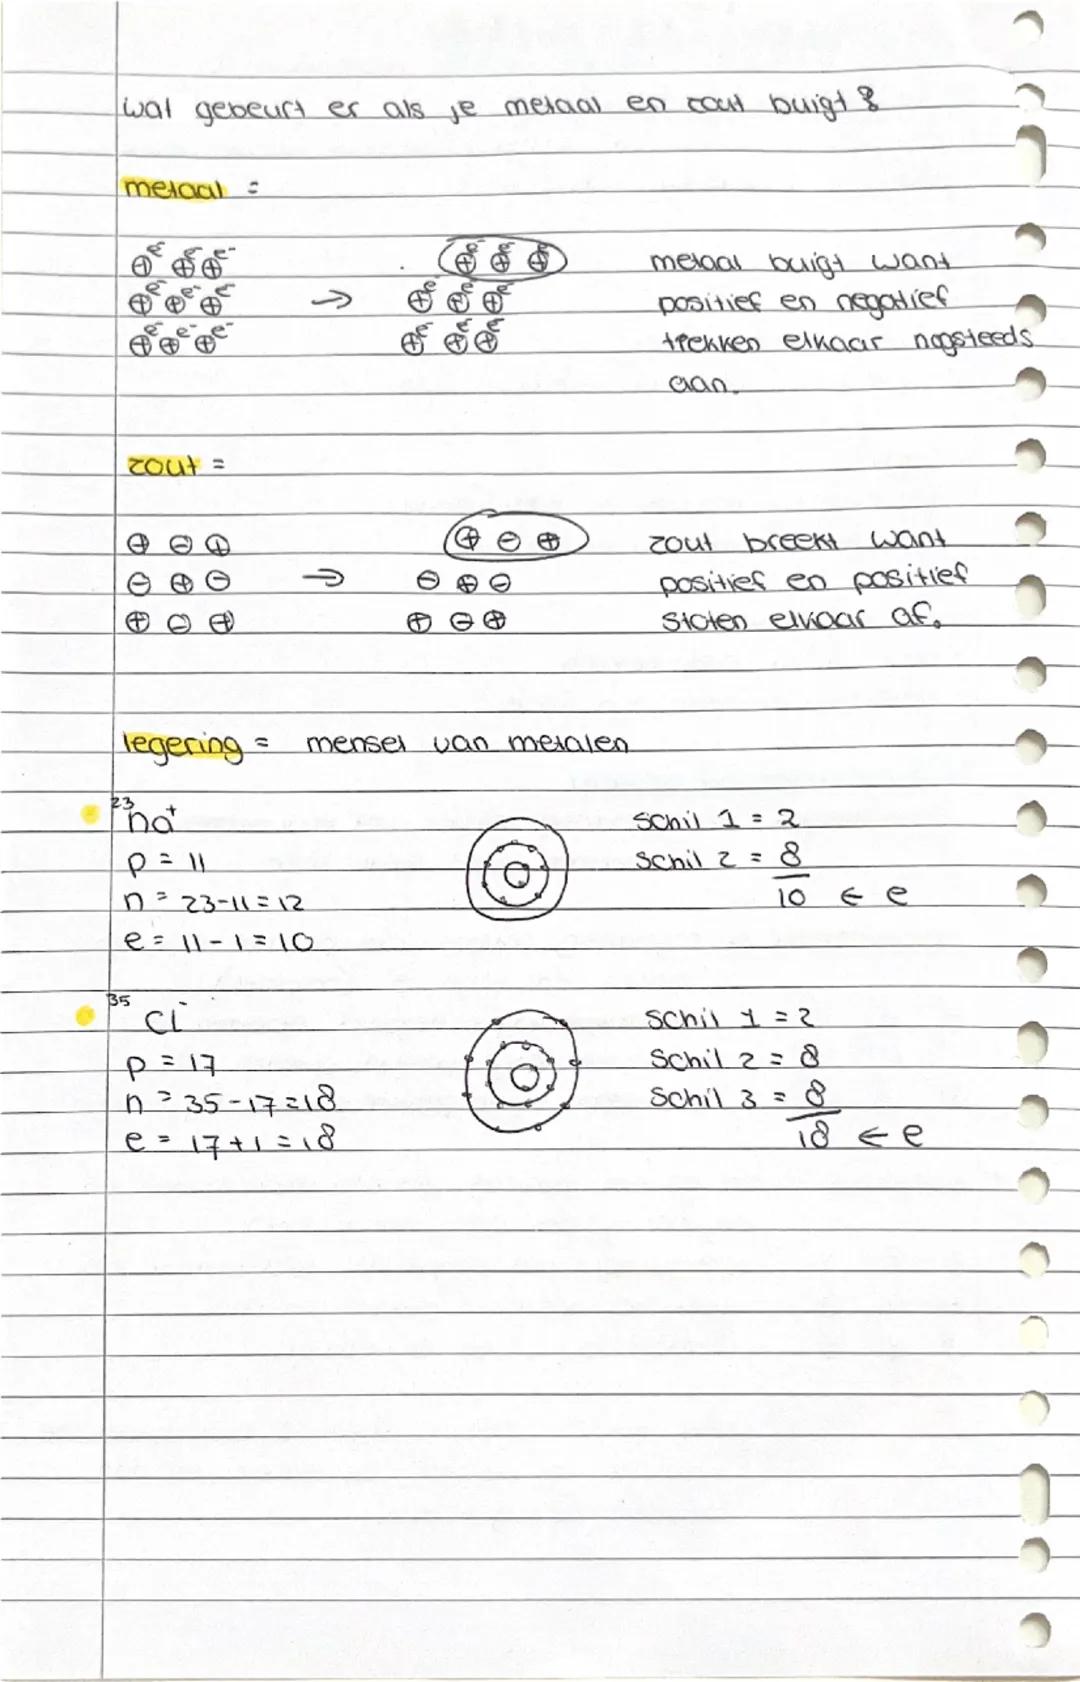 wat gebeurt er als je metaal en zout buigt?
metaal =
⊕e⁻ ⊕e⁻ ⊕e⁻ ⊕e⁻ ⊕e⁻ ⊕e⁻ metaal buigt want
⊕e⁻ ⊕e⁻ ⊕e⁻ → ⊕e⁻ ⊕e⁻ ⊕e⁻ positief en negatief
⊕e⁻ ⊕e⁻ ⊕e⁻ ⊕e⁻ ⊕e⁻ ⊕e⁻ trekken elkaar nogsteeds
aan.
zout =
⊕ ⊖ ⊕ ⊕ ⊖ ⊕ zout breekt want
⊖ ⊕ ⊖ → ⊖ ⊕ ⊖ positief en positief
⊕ ⊖ ⊕ ⊕ ⊖ ⊕ stoten elkaar af.
legering = mensel van metalen
²³na⁺ schil 1 = 2
p = 11 schil 2 = 8
n = 23-11 = 12 10 ← e
e = 11 - 1 = 10
³⁵Cl⁻ schil 1 = 2
p = 17 schil 2 = 8
n = 35 - 17 = 18 schil 3 = 8
e = 17 + 1 = 18 18 ← e